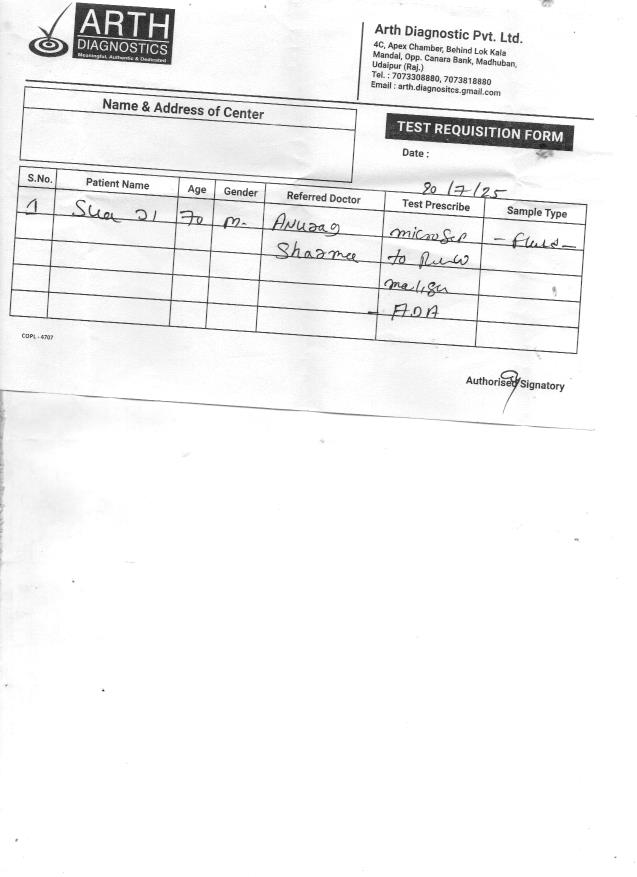 ARTH
DIAGNOSTICS
Meaningful, Authentic & Dedicated
Arth Diagnostic Pvt. Ltd.
4C, Apex Chamber, Behind Lok Kala
Mandal, Opp. Canara Bank, Madhuban,
Udaipur (Raj.)
Tel. : 7073308880, 7073818880
Email : arth.diagnositcs.gmail.com
Name & Address of Center
TEST REQUISITION FORM
Date :
20/7/25
S.No. Patient Name Age Gender Referred Doctor Test Prescribe Sample Type
1 70 M- Anurag
Sharma to
- ADA
COPL - 4707
Authorised Signatory